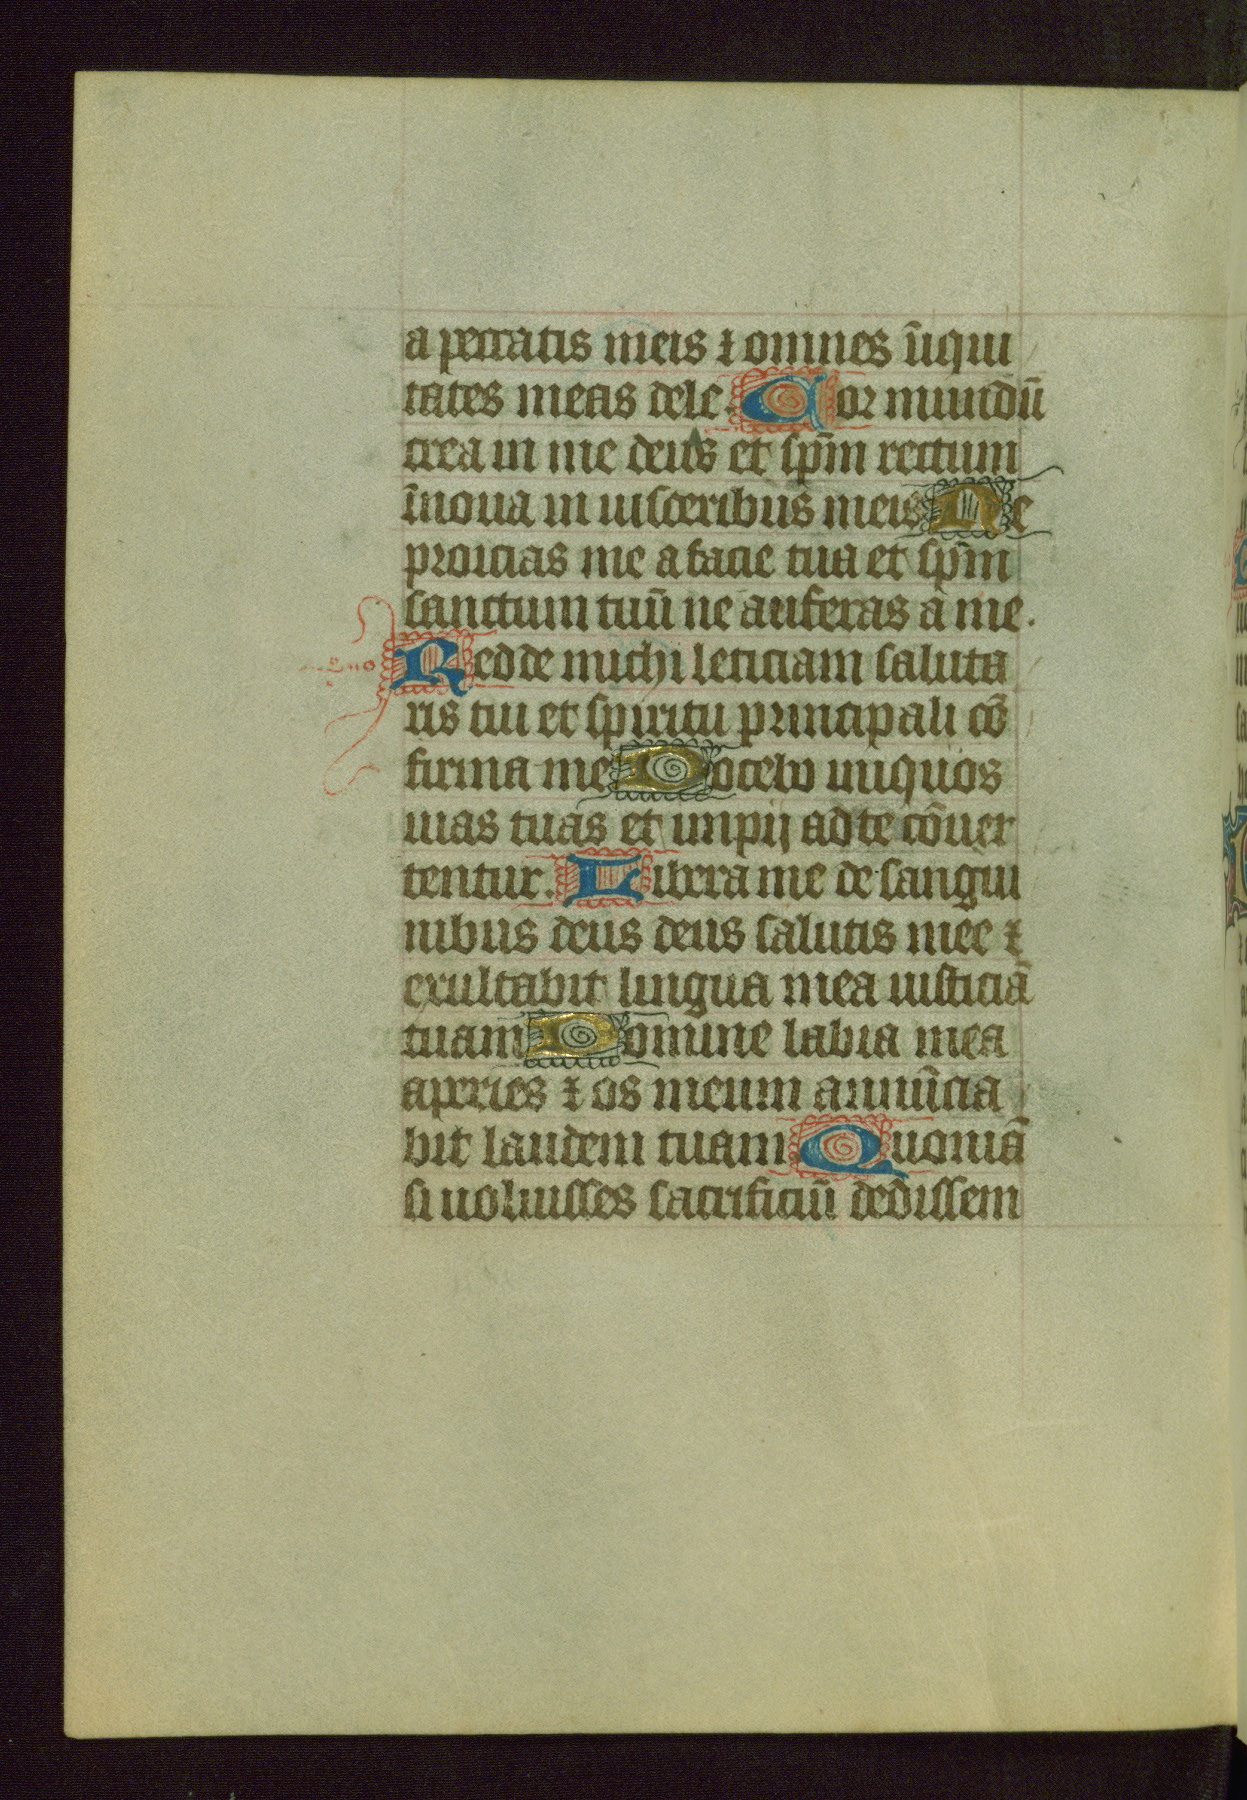 a peccatis meis ⁊ omnes īiqui
tates meas dele. Cor mundū
crea in me deus et sp̄m rectum
īnoua in uisceribus meis Ne
proicias me a facie tua et sp̄m
sanctum tuū ne auferas a me.
Redde michi leticiam saluta
ris tui et spiritu principali cō
firma me Docebo iniquos
uias tuas et impij ad te cōuer
tentur. Libera me de sangui
nibus deus deus salutis mee ⁊
exultabit lingua mea iusticiā
tuam Domine labia mea
aperies ⁊ os meum annūcia
bit laudem tuam Quoniā
si uoluisses sacrificiū dedissem